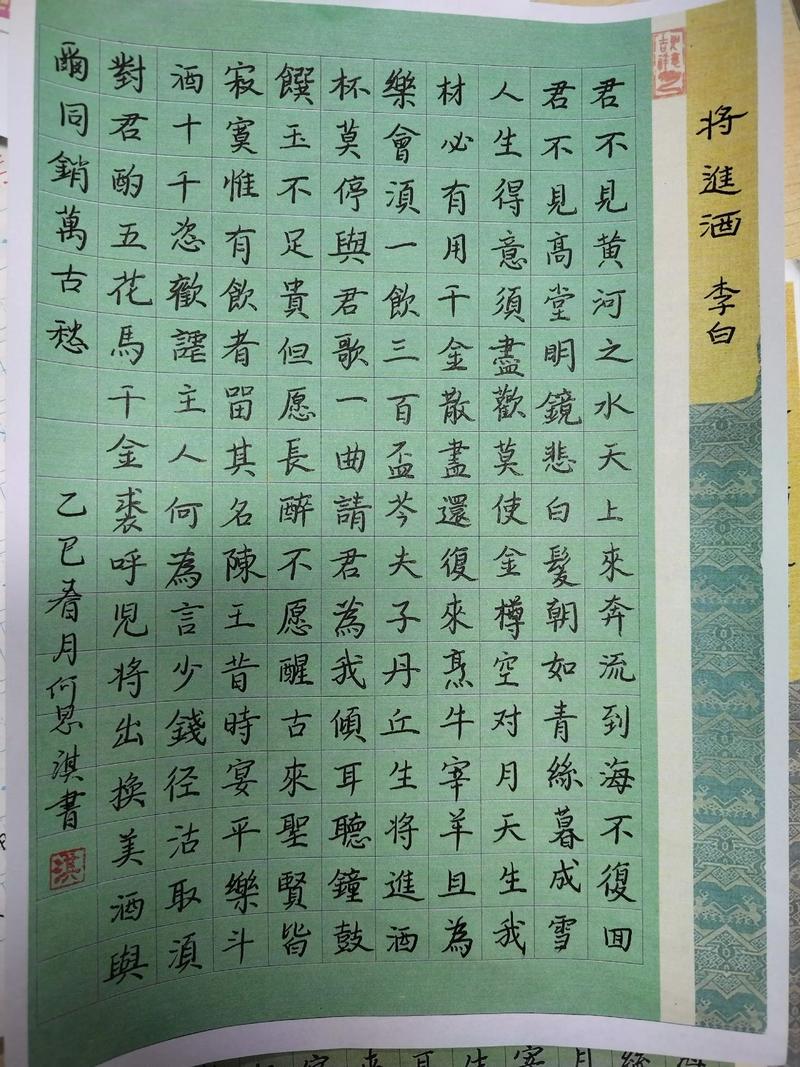 将進酒 李白
君不見黄河之水天上來奔流到海不復囬
君不見高堂明鏡悲白髮朝如青絲暮成雪
人生得意須盡歡莫使金樽空对月天生我
材必有用千金散盡還復來烹牛宰羊且為
樂會須一飲三百盃岑夫子丹丘生将進酒
杯莫停與君歌一曲請君為我傾耳聽鐘鼓
饌玉不足貴但愿長醉不愿醒古來聖賢皆
寂寞惟有飲者留其名陳王昔時宴平樂斗
酒十千恣歡謔主人何為言少錢径沽取須
對君酌五花馬千金裘呼兒将出換美酒與
爾同銷萬古愁 乙巳春月何思淇書
淇